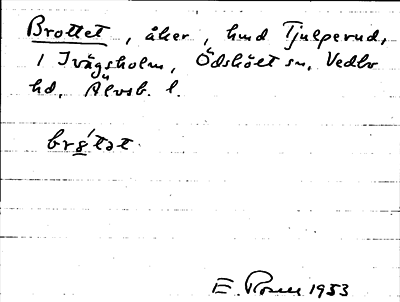 Brottet, åker, hmd Tjulperud,
1 Ivägsholm, Ödskölt sn, Vedbo
hd, Älvsb. l.
br8́tət
E. Rosell 1953